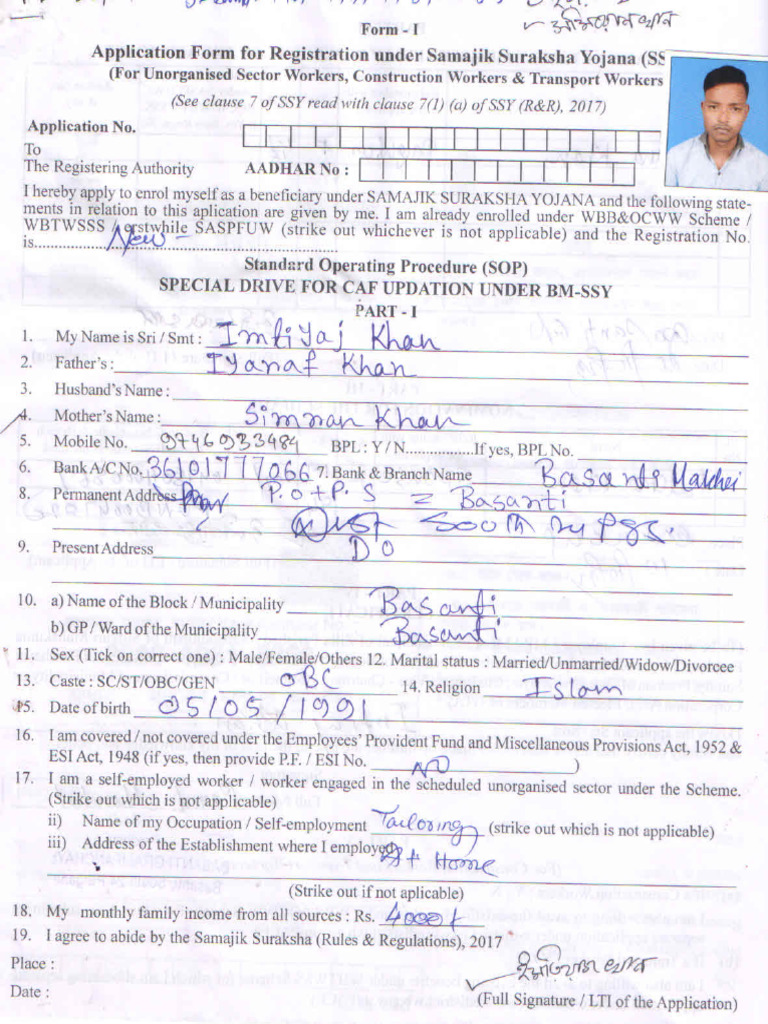 Form - I
Application Form for Registration under Samajik Suraksha Yojana (SS
(For Unorganised Sector Workers, Construction Workers & Transport Workers
(See clause 7 of SSY read with clause 7(1) (a) of SSY (R&R), 2017)
Application No.
To
The Registering Authority AADHAR No :
I hereby apply to enrol myself as a beneficiary under SAMAJIK SURAKSHA YOJANA and the following state-
ments in relation to this aplication are given by me. I am already enrolled under WBB&OCWW Scheme /
WBTWSSS / erstwhile SASPFUW (strike out whichever is not applicable) and the Registration No.
is......New -......
Standard Operating Procedure (SOP)
SPECIAL DRIVE FOR CAF UPDATION UNDER BM-SSY
PART - I
1. My Name is Sri / Smt : Imtiyaj Khan
2. Father's : Iyanaf Khan
3. Husband's Name :
4. Mother's Name : Simman Khan
5. Mobile No. 9746933484 BPL : Y / N..............If yes, BPL No.
6. Bank A/C No. 36101777066 7. Bank & Branch Name Basanti
8. Permanent Address P.O + P.S = Basanti
Dist South 24 Pgs.
9. Present Address DO
10. a) Name of the Block / Municipality Basanti
b) GP / Ward of the Municipality Basanti
11. Sex (Tick on correct one) : Male/Female/Others 12. Marital status : Married/Unmarried/Widow/Divorcee
13. Caste : SC/ST/OBC/GEN OBC 14. Religion Islam
15. Date of birth 05/05/1991
16. I am covered / not covered under the Employees' Provident Fund and Miscellaneous Provisions Act, 1952 &
ESI Act, 1948 (if yes, then provide P.F. / ESI No. NO )
17. I am a self-employed worker / worker engaged in the scheduled unorganised sector under the Scheme.
(Strike out which is not applicable)
ii) Name of my Occupation / Self-employment Tailoring (strike out which is not applicable)
iii) Address of the Establishment where I employed
Home
(Strike out if not aplicable)
18. My monthly family income from all sources : Rs. 4000/-
19. I agree to abide by the Samajik Suraksha (Rules & Regulations), 2017
Place :
Date :
(Full Signature / LTI of the Application)